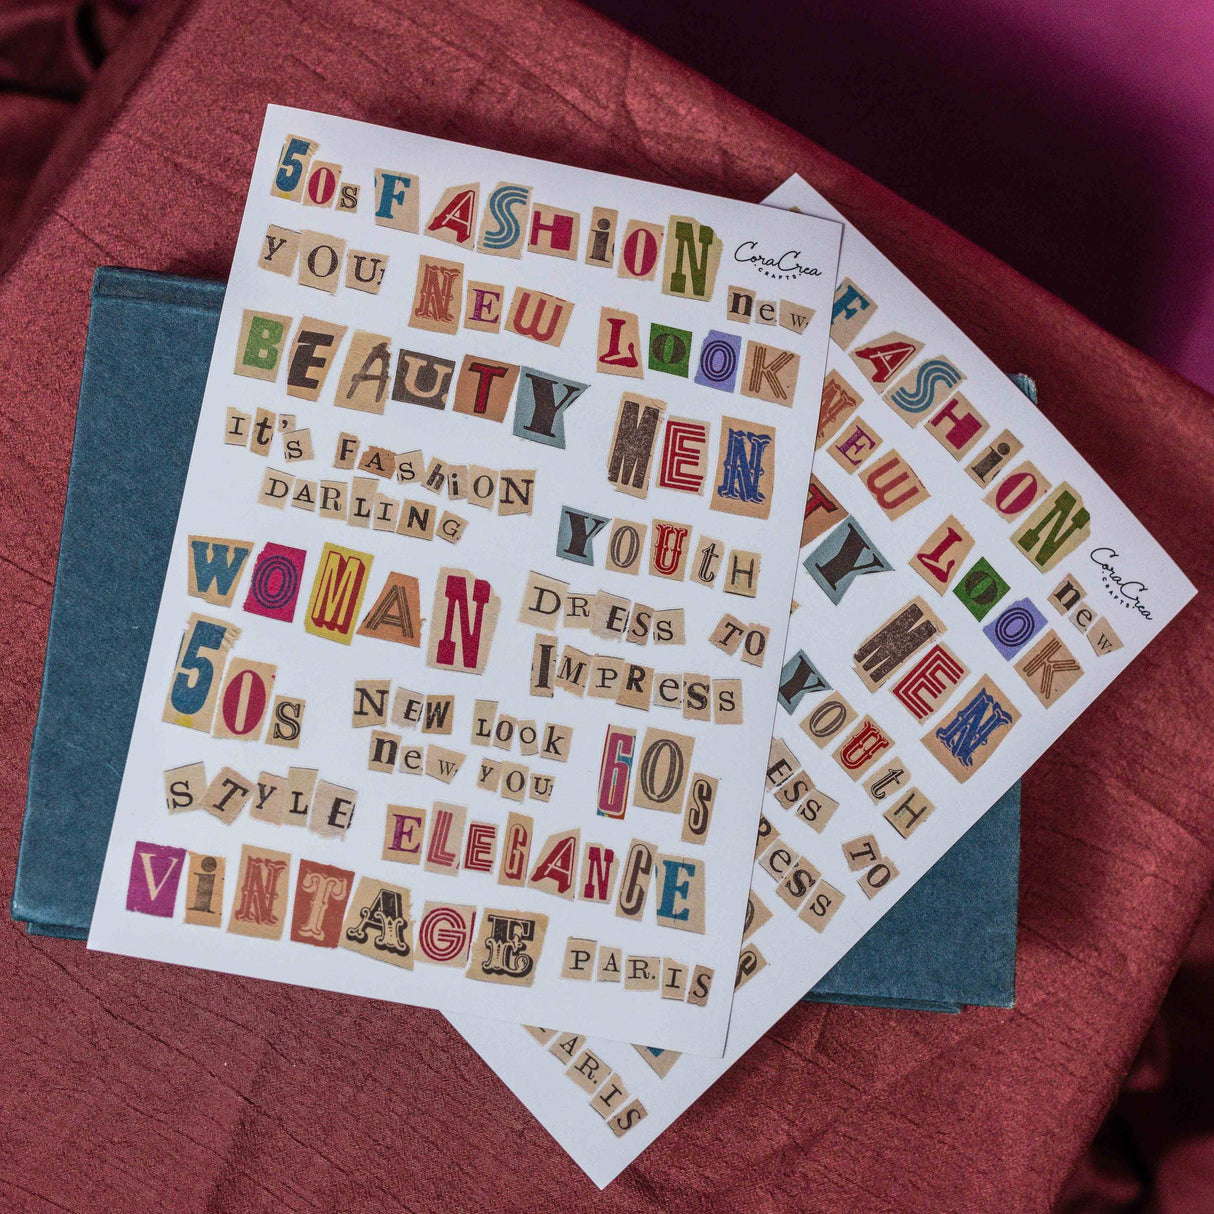 50s FASHiON
CoraCrea
CRAFTS
YOU
NEW LOOK
new
BEAUTY MEN
It's FASHiON
DARLING
YOUtH
WOMAN
DRESS TO
IMPRESS
50S
NEW LOOK
new YOU
60s
STYLE
ELEGANCE
ViNTAGE
PARIS
FASHiON
CoraCrea
CRAFTS
NEW LOOK
new
TY MEN
YOUtH
ESS TO
RESS
ARIS